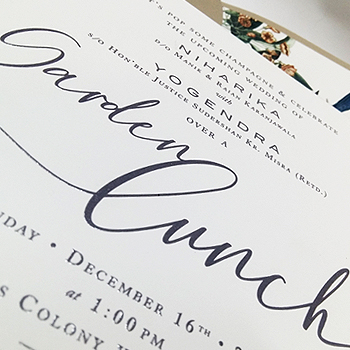 'S POP SOME CHAMPAGNE & CELEBRATE
THE UPCOMING WEDDING OF
NIHARIKA
D/O MANIK & RAIAN KARANJAWALA
with
YOGENDRA
S/O HON'BLE JUSTICE SUDERSHAN KR. MISRA (RETD.)
OVER A
Garden
Lunch
DAY • DECEMBER 16TH •
at 1:00 PM
S COLONY